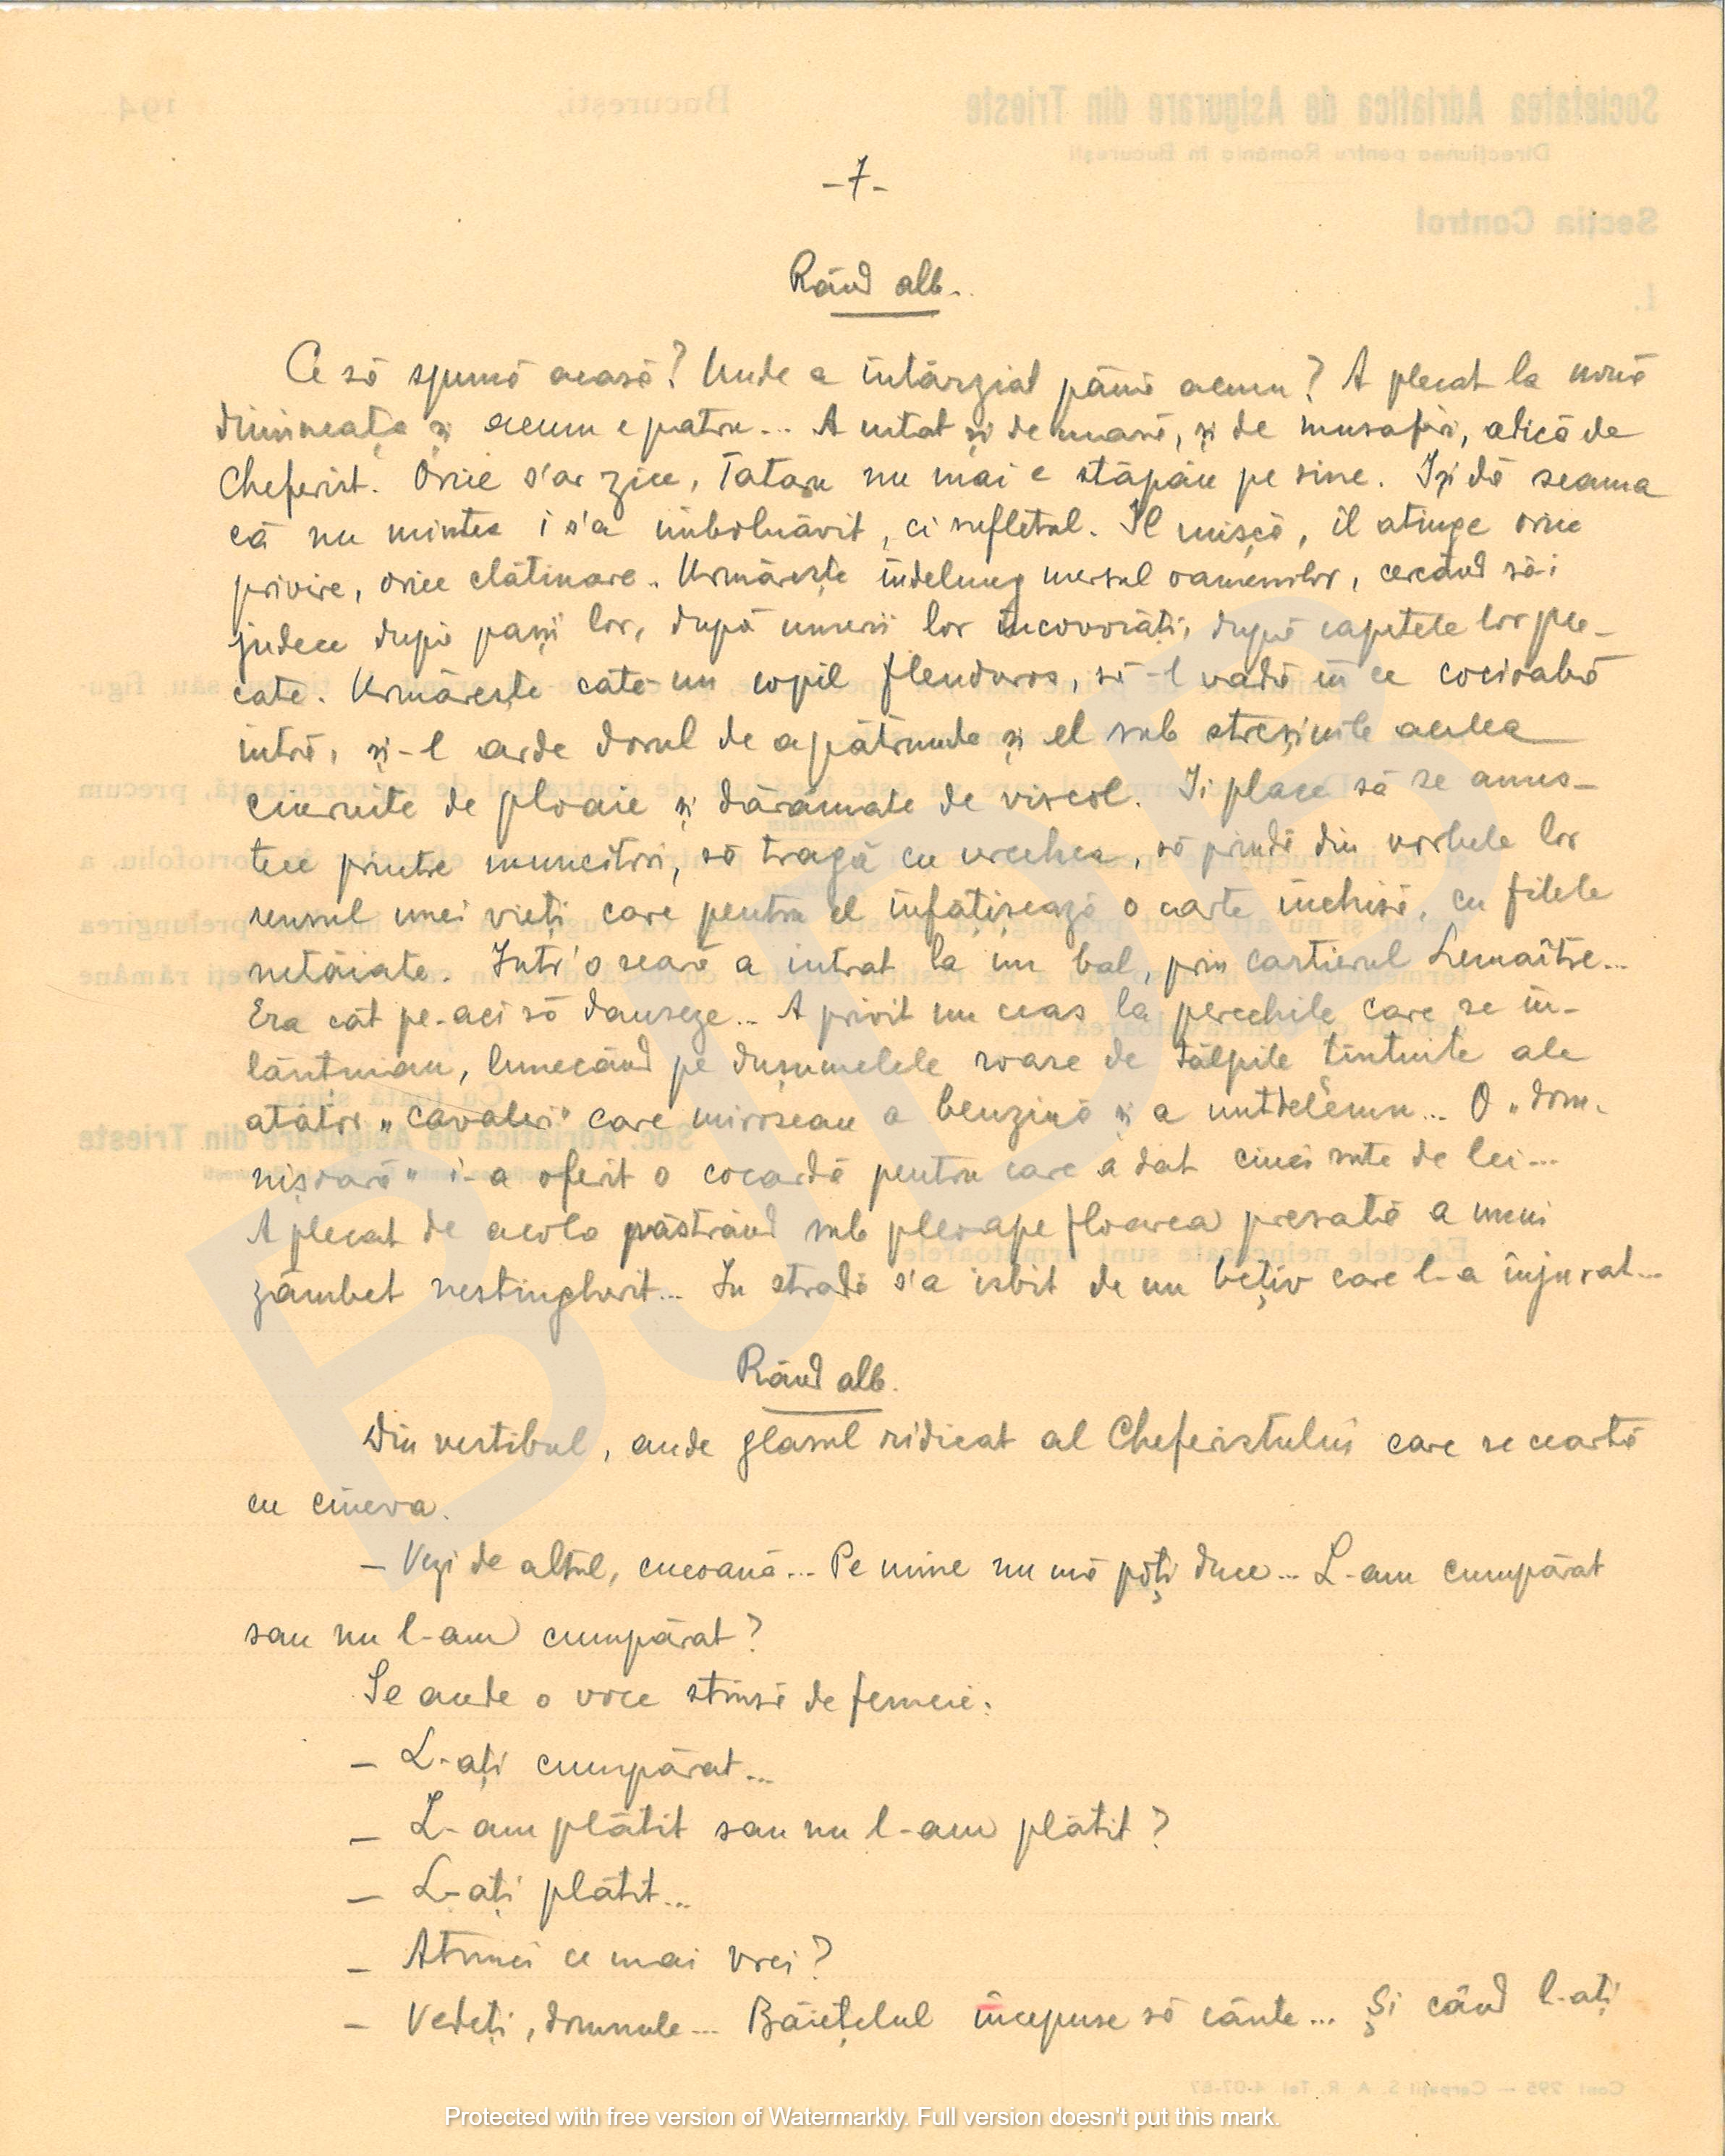 -7-
Rând alb.
Ce să spună acasă? Unde a întârziat până acum? A plecat la nouă
dimineața și acum e patru... A uitat și de masă, și de musafiri, adică de
Cheferist. Orice s'ar zice, Tataru nu mai e stăpân pe sine. Iși dă seama
că nu mintea i s'a îmbolnăvit, ci sufletul. Il mișcă, îl atinge orice
privire, orice clătinare. Urmărește îndelung mersul oamenilor, cercând să-i
judece după pașii lor, după umerii lor încovoiați, după capetele lor ple-
cate. Urmărește câte-un copil flenduros, să-l vadă în ce cocioabă
intră, și-l arde dorul de a pătrunde și el sub streșinile acelea
ciuruite de ploaie și dărâmate de viscol. Ii place să se ames-
tece printre muncitori, să tragă cu urechea, să prindă din vorbele lor
sensul unei vieți care pentru el înfățișează o carte închisă, cu filele
netăiate. Intr'o seară a intrat la un bal, prin cartierul Lemaître...
Era cât pe-aci să danseze... A privit un ceas la perechile care se în-
lănțuiau, lunecând pe dușumelele roase de tălpile țintuite ale
atâtor „cavaleri" care miroseau a benzină și a untdelemn... O „dom-
nișoară" i-a oferit o cocardă pentru care a dat cinci sute de lei...
A plecat de acolo păstrând sub pleoape floarea presată a unui
zâmbet nestingherit... In stradă s'a isbit de un bețiv care l-a înjurat...
Rând alb.
Din vestibul, aude glasul ridicat al Cheferistului care se ceartă
cu cineva.
- Vezi de altul, cucoană... Pe mine nu mă poți duce... L-am cumpărat
sau nu l-am cumpărat?
Se aude o voce stinsă de femeie:
- L-ați cumpărat...
- L-am plătit sau nu l-am plătit?
- L-ați plătit...
- Atunci ce mai vrei?
- Vedeți, domnule... Băiețelul începuse să cânte... Și când l-ați
Protected with free version of Watermarkly. Full version doesn't put this mark.